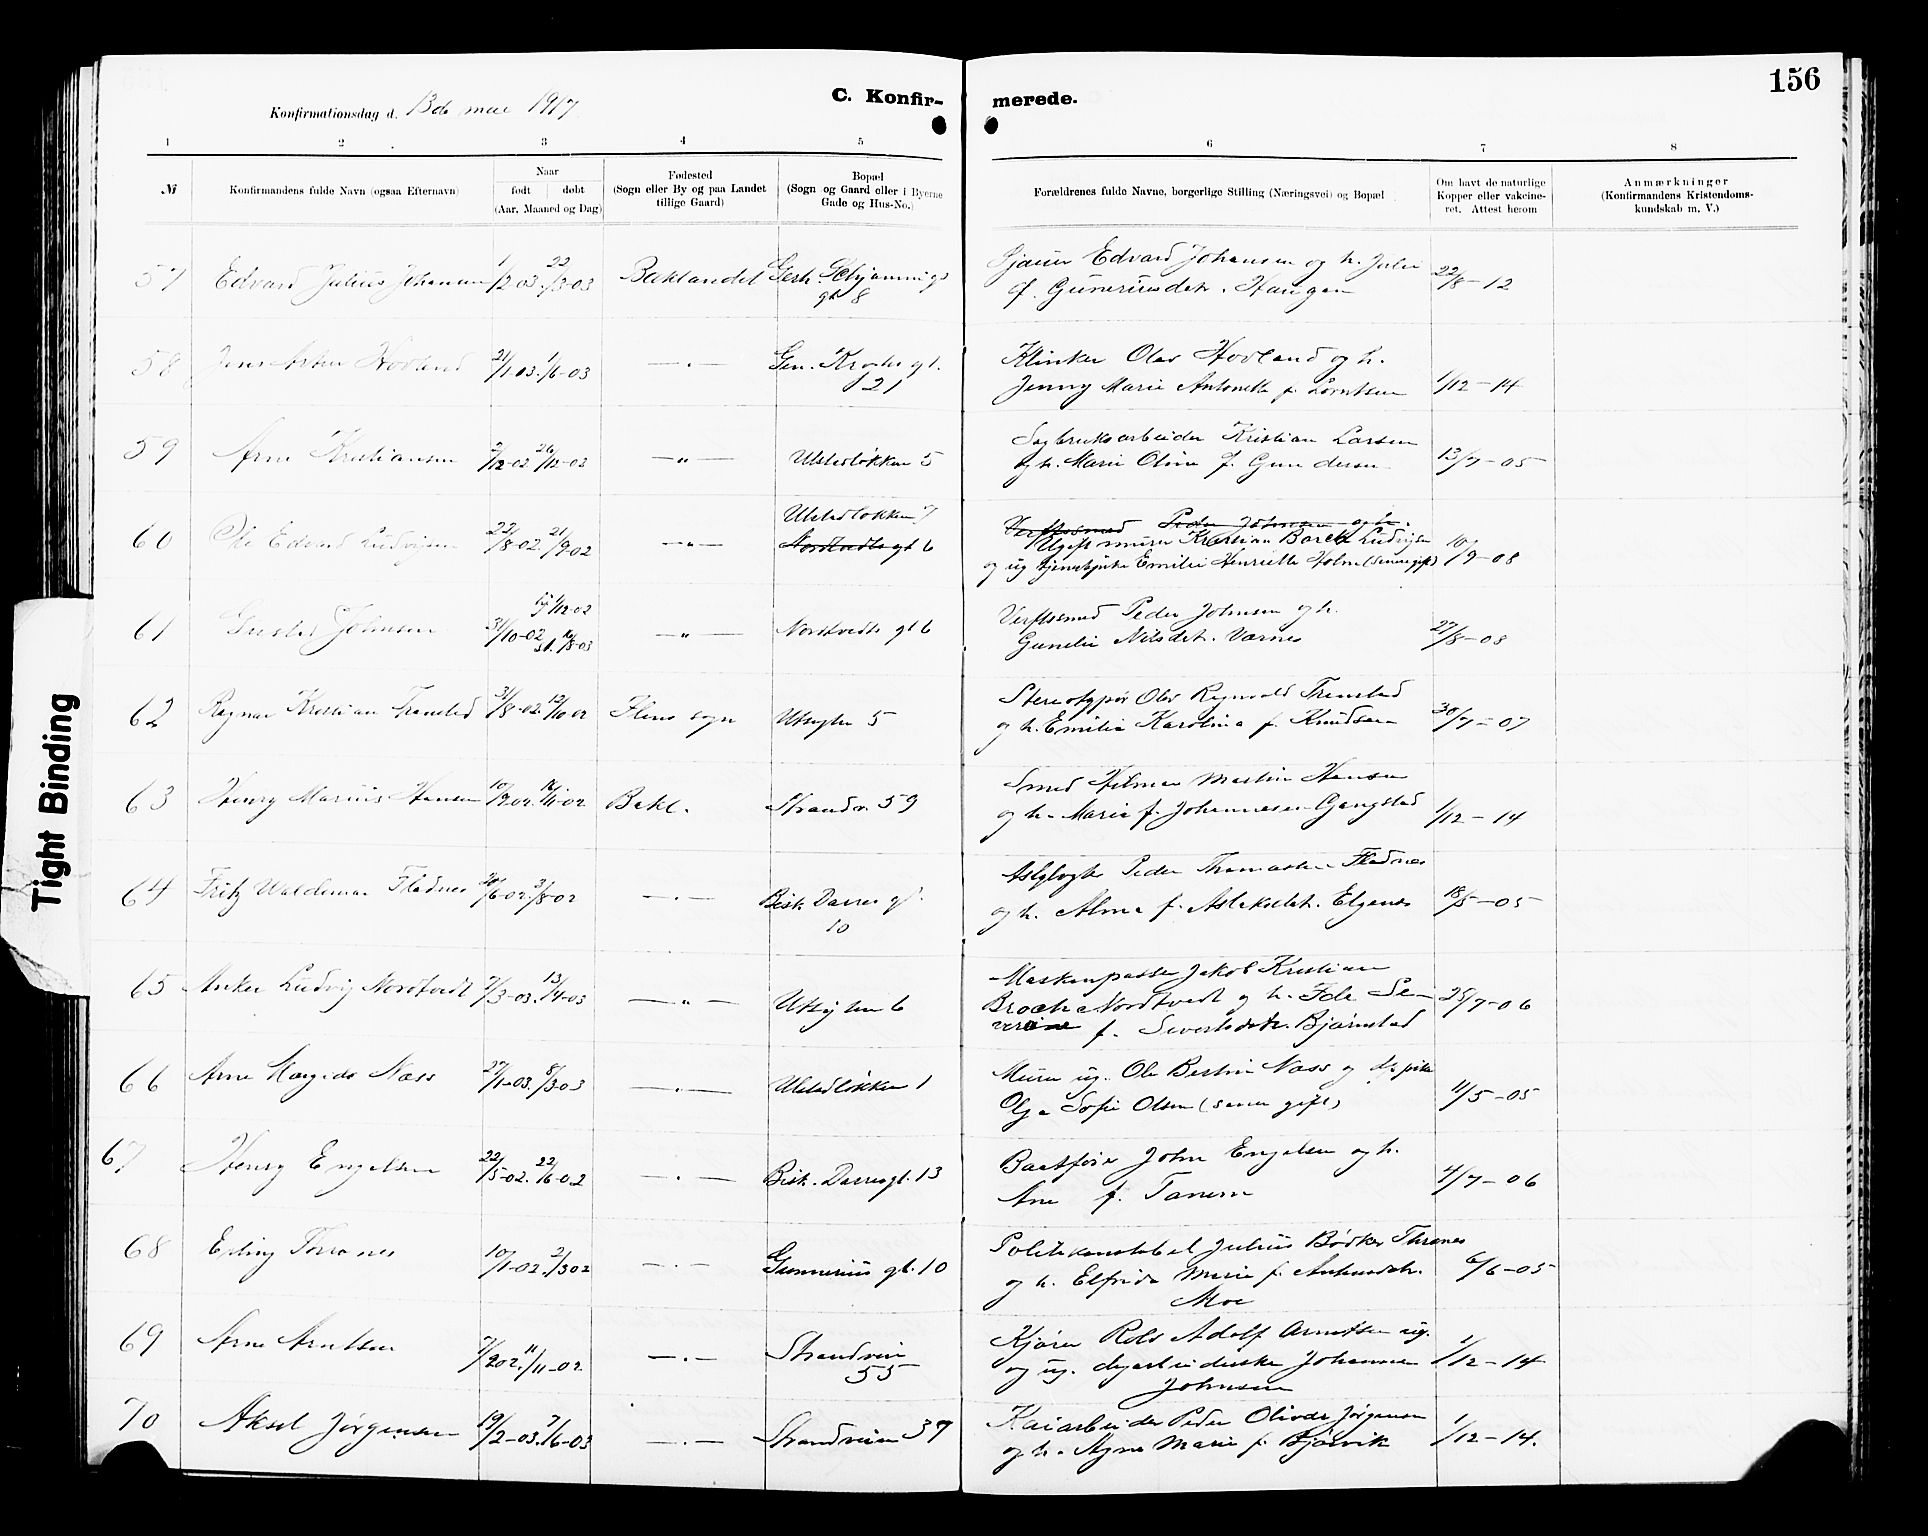 156
Konfirmationsdag d. 13de mai 1917
C. Konfir-
merede.
1 2 3 4 5 6 7 8
№
Konfirmandens fulde Navn (ogsaa Efternavn)
Naar
født døbt
(Aar, Maaned og Dag)
Fødested
(Sogn eller By og paa Landet
tillige Gaard)
Bopæl
(Sogn og Gaard eller i Byerne
Gade og Hus-No.)
Forældrenes fulde Navne, borgerlige Stilling (Næringsvei) og Bopæl
Om havt de naturlige
Kopper eller vakcine-
ret. Attest herom
Anmærkninger
(Konfirmandens Kristendoms-
kundskab m. V.)
57 Edvard Julius Johansen 1/2 03. 22/3-03 Baklandet Gerh. Schjønnings
gt 8
Edvard Johansen og h. Julie
f. Guneriusdtr. Haugan
22/8-12
58 Hovland 21/1 03. 1/6-03 —"— Gen. Krohs gt.
21
Klinker Olav Hovland og h.
Jenny Marie Antonette f. Lorntsen
1/12-14
59 Arne Kristiansen 2/12-02 26/12-02 —"— Ulstadløkken 5
Sagbruksarbeider Kristian Larsen
og h. Marie Oline f. Gundersen
13/7-05
60 Ole Edvard Ludvigsen 22/8-02. 21/9 02 —"— Ulstadløkken 7
Nordtvedts gt 6
Verftssmed Peder Johnsen og h.
Ugift murer Kristian Borch Ludvigsen
og ug tjenestpike Emilie Henriette Holm (senere gift)
10/9-08
61 Gustav Johnsen 31/10-02 1/12-02
st. 8-03 —"— Nordtvedts gt 6
Verftssmed Peder Johnsen og h.
Gunelie Nilsdtr. Værnes
27/8-08
62 Ragnar Kristian Transtad 31/8-02. 12/10 02 Ilens sogn Utsigten 5
Stereotypør Olav Ragnvald Transtad
og h. Emilie Karolina f. Knudsen
30/7-07
63 Henry Marius Hansen 10/9 02. 16/11-02 Bakl. Strandv. 59
Smed Hilmar Martin Hansen
og h. Marie f. Johannesen Gangstad
1/12-14
64 Fritz Waldemar Fladnes 20/6-02. 3/8-02 —"— Bisk. Darres gt.
10
Peder Thomassen Fladnes
og h. Alma f. Aslaksdtr. Elgenes
18/5-05
65 Anker Ludvig Nordtvedt 2/3-03. 13/4-03 —"— Utsigten 6
Maskinpasser Jakob Kristian
Broch Nordtvedt og h. Ida Se-
verine f. Sivertsdtr. Bjørnstad
25/7-06
66 Arne Næss 27/1-03. 8/3 03 —"— Ulstadløkken 1
Murer ug. Ole Bertin Næss og pike
Olga Sofie Olsen (senere gift)
11/5-05
67 Henry Engelsen 22/5-02. 22/6-02 —"— Bisk. Darresgt. 13
Baatfører John Engelsen og h.
Ane f. Tanem
4/7-06
68 Erling 10/1-02. 2/3 02 —"— Gunnerius gt. 10
Politikonstabel Julius Bødker Thrones
og h. Elfrida Marie f. Antonsdtr.
Moe
6/6-05
69 Arne Arntsen 7/9 02. 11/11-02 —"— Strandveien
55
Kjører Rolf Adolf Arntsen ug.
og ug. Johanna
Johnsen
1/12-14
70 Aksel Jørgensen 19/2-03. 7/6-03 —"— Strandveien 39
Kaiarbeider Peder Oliver Jørgensen
og h. Marie f. Bjørvik
1/12-14.
Tight Binding